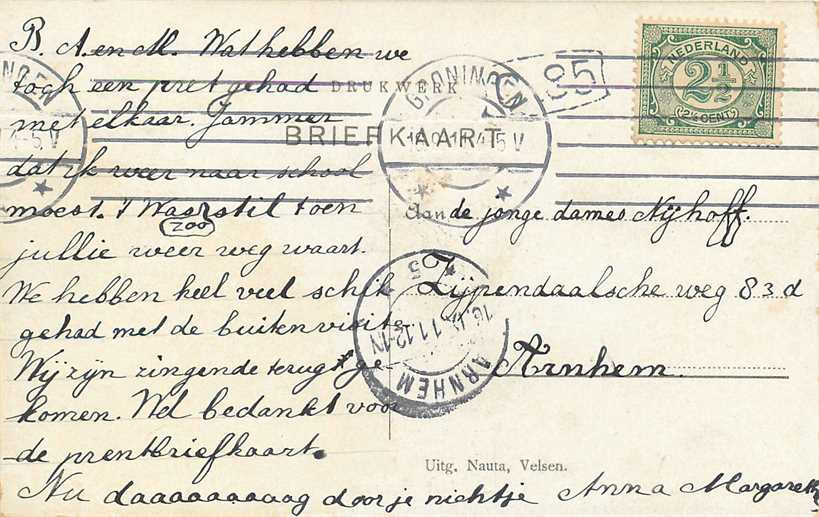 B. A. en M. Wat hebben we
toch een pret gehad
met elkaar. Jammer
dat ik weer naar school
moest. 't Was stil toen
zoo
jullie weer weg waart.
We hebben heel veel schik
gehad met de buitenvisite.
Wij zijn zingende terug ge
komen. Wel bedankt voor
de prentbriefkaart.
Nu daaaaaaaaag door je nichtje Anna Margareth
DRUKWERK
BRIEFKAART
Aan de jonge dames Nijhoff
Zijpendaalsche weg 83 d
Arnhem.
Uitg. Nauta, Velsen.
NEDERLAND
2½
2½ CENT
GRONINGEN
4-5 V
95
ARNHEM
12-1N
5
NGEN
-5 V